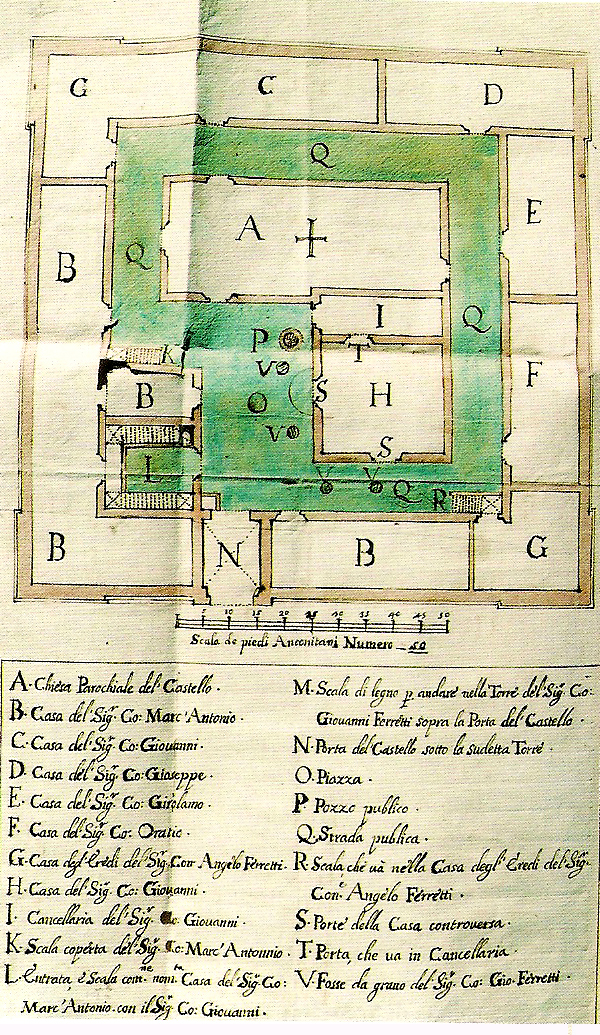 G C D
Q
A E
B Q
I Q
P K T
V F
B O S H
V
L S
V V Q R
B N B G
5 10 15 20 25 30 35 40 45 50
Scala de piedi Anconitani Numero 50
A. Chiesa Parochiale del Castello.
B. Casa del Sig.r Co: Marc'Antonio.
C. Casa del Sig.r Co: Giovanni.
D. Casa del Sig.r Co: Gioseppe.
E. Casa del Sig.r Co: Girolamo.
F. Casa del Sig.r Co: Oratio.
G. Casa degl'Eredi del Sig.r Con Angelo Ferretti.
H. Casa del Sig.r Co: Giovanni.
I. Cancellaria del Sig.r Co: Giovanni.
K. Scala coperta del Sig.r Co: Marc'Antonnio.
L. Entrata è Scala Casa del Sig.r Co:
Marc'Antonio con il Sig.r Co: Giovanni.
M. Scala di legno p andare nella Torre del Sig.r Co:
Giovanni Ferretti sopra la Porta del Castello.
N. Porta del Castello sotto la sudetta Torre.
O. Piazza.
P. Pozzo publico.
Q. Strada publica.
R. Scala, che và nella Casa degl'Eredi del Sig.r
Con.e Angelo Ferretti.
S. Porte della Casa controversa.
T. Porta, che va in Cancellaria.
V. Fosse da grano del Sig.r Co: Gio: Ferretti.